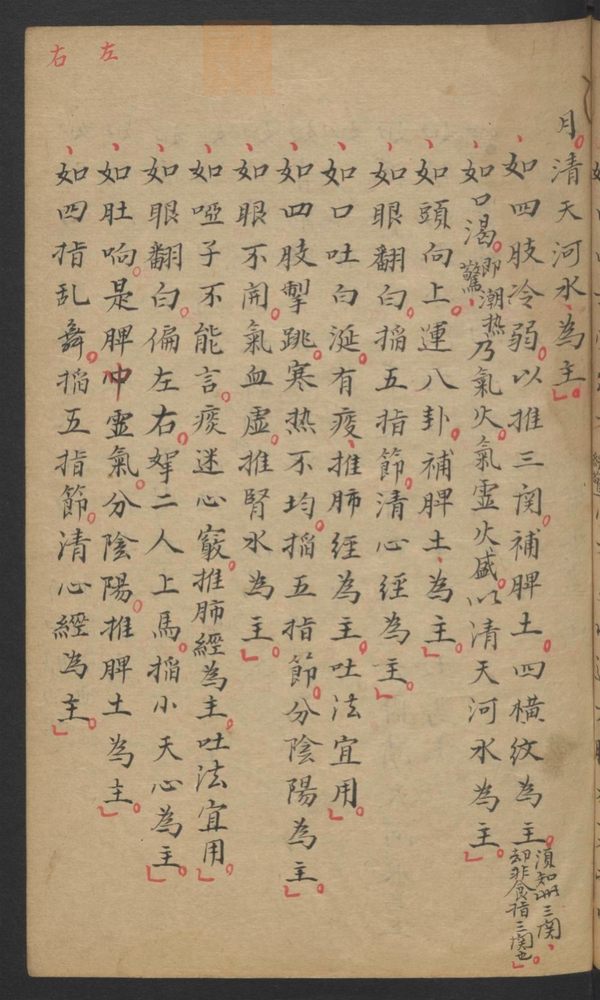 月。清天河水、為主。
、如四肢冷弱。以推三関。補脾土。四橫紋為主。須知此三関、却非食指三関也。
、如口渴。即潮热驚、乃氣火。氣虛火盛。以清天河水為主。
、如頭向上。運八卦。補脾土、為主。
、如眼翻白。搯五指節。清心經為主。
、如口吐白涎。有痰、推肺經為主。吐法宜用。
、如四肢掣跳。寒热不均。搯五指節。分陰陽為主。
、如眼不開。氣血虛。推腎水為主。
、如啞子不能言。痰迷心竅。推肺經為主。吐法宜用。
、如眼翻白。偏左右。挐二人上馬。搯小天心為主。
、如肚响。是脾冲靈氣。分陰陽。推脾土為主。
、如四指乱舞。搯五指節。清心經為主。
左
右